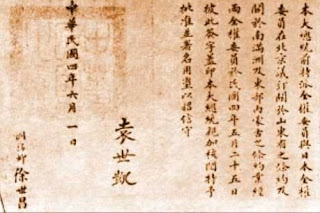 本大總統前特派全權委員與日本全權
委員在北京議訂關於山東省之條約及
關於南滿洲及東部內蒙古之條約業經
兩全權委員於民國四年五月二十五日
彼此簽字蓋印本大總統親加核閱特予
批准並署名用璽以昭信守
袁世凱
中華民國四年六月一日
國務卿
徐世昌